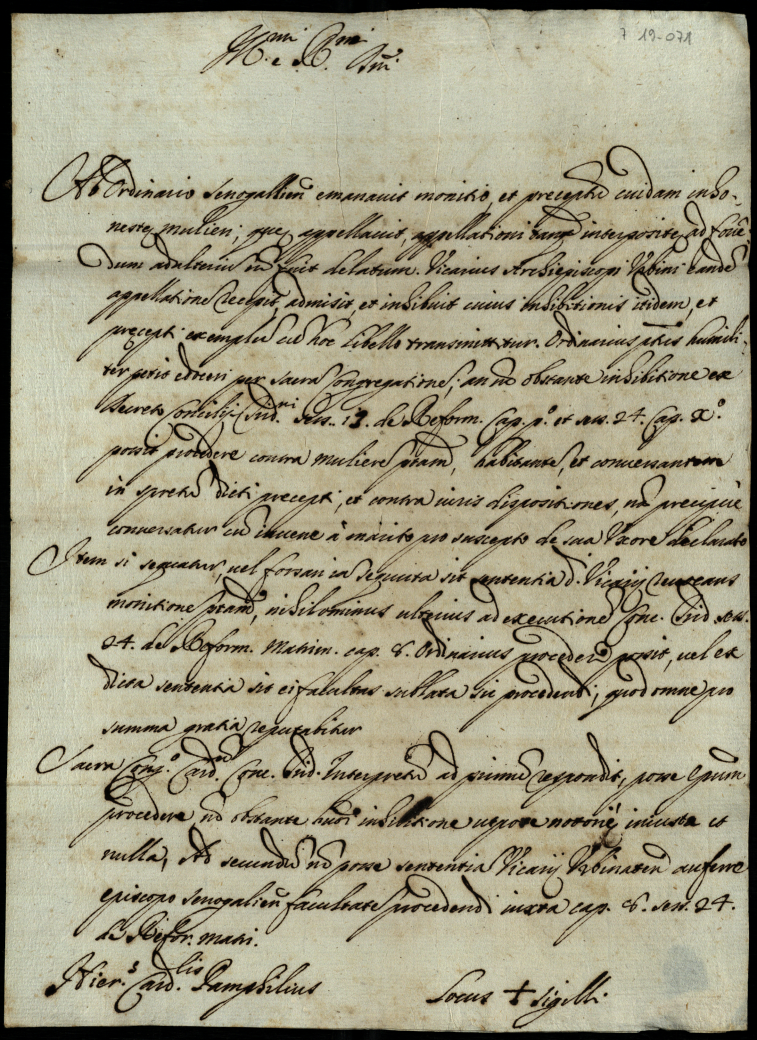 7 19-071
Ill.mi e R.mi Dni
Ab Ordinario Senogallien emanavit monitio, et preceptũ cuidam inho-
nestę mulieri, quę appellavit, appellationi tamẽ interpositę ad fovẽ
dum adulteriũ nõ fuit delatum. Vicarius Archiepiscopi Urbini eandẽ
appellationẽ recepit, admisit, et inhibuit cuius inhibitionis itidem, et
pręcepti exemplũ cũ hoc libello transmittitur. Ordinarius humili-
ter petit edoceri per Sacrã Congregationẽ, an nõ obstante inhibitione ex
Decreto Concilij Trid.ni sess. 13. de Reform. Cap. p.º et sess. 24. Cap. Xº.
possit procedere contra mulierẽ ptam, habitantẽ, et conversantem
in spretũ dicti precepti, et contra iuris dispositiones, nã precipuè
conversatur cũ iuvene à marito pro suspecto de sua Uxore declarato
Item si sequatur, vel forsan iã sequuta sit sententia d. Vicarij revocans
monitionẽ ptam, nihilominus ulterius ad executionẽ Conc. Trid. sess.
24. de Reform. Matrim. cap. 8. Ordinarius procedere possit, vel ex
dicta sententia sit ei facultas sublata sic procedendi, quod omne pro
summa gratia reputabitur
Sacra Cong.º Card. Conc. Trid. Interpretũ ad primũ respondit, posse Epum
procedere nõ obstante huoi inhibitione utpote notoriè iniusta et
nulla, Ad secundũ nõ posse sententiã Vicarij Urbinaten auferre
episcopo Senogalien facultatẽ procedendi iuxta cap. 8. sess. 24.
de Refor. matri.
Hier.s Card.lis Pamphilius
Locus + Sigilli